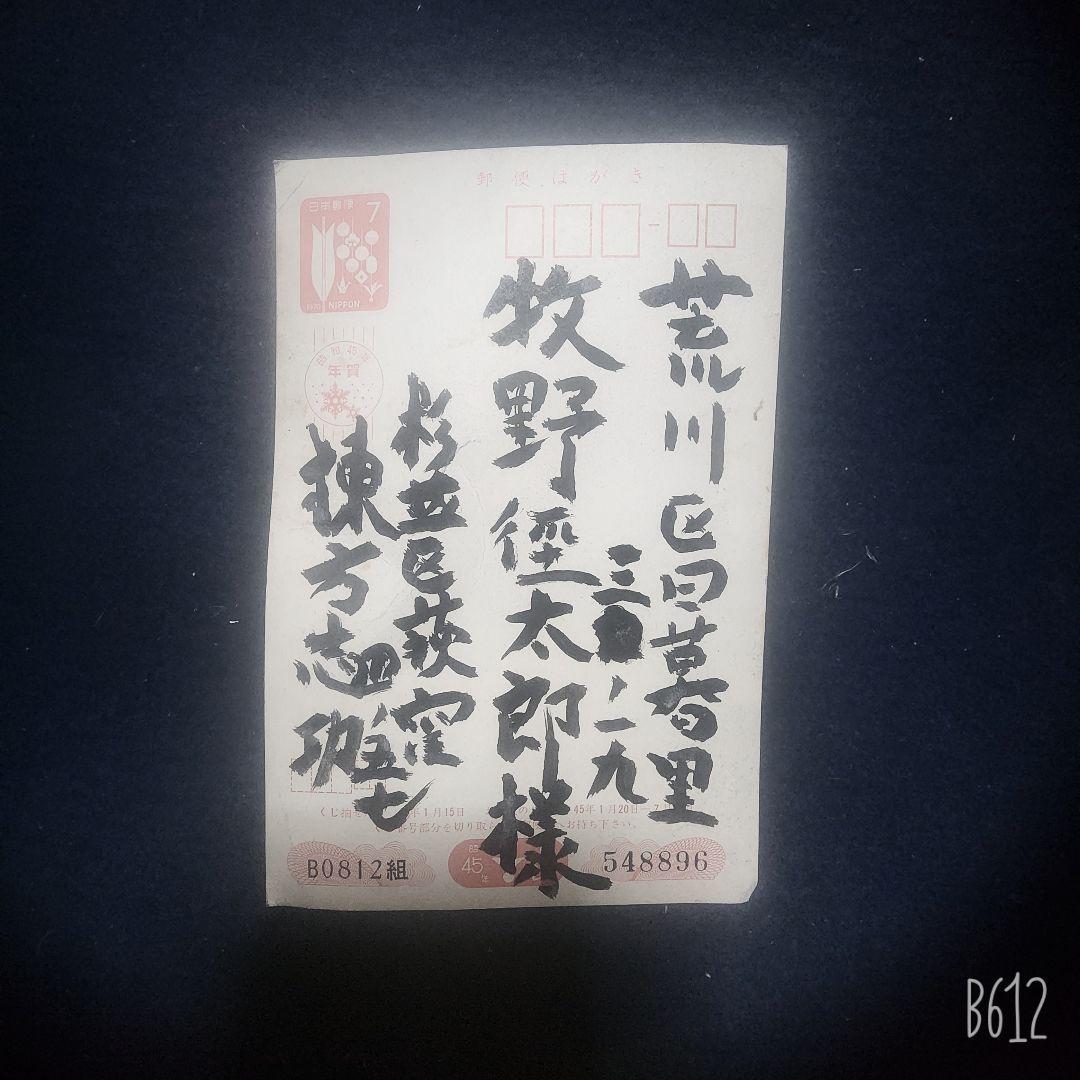 郵便はがき
日本郵便 7
1970 NIPPON
昭和45年
年賀
荒川区日暮里
三三 、一九
牧野徑太郎様
杉並区荻窪
四、五七
棟方志功
くじ抽せ 年1月15日 45年1月20日―7
番号部分を切り取 お待ち下さい。
B0812組
昭
45
年
548896
B612